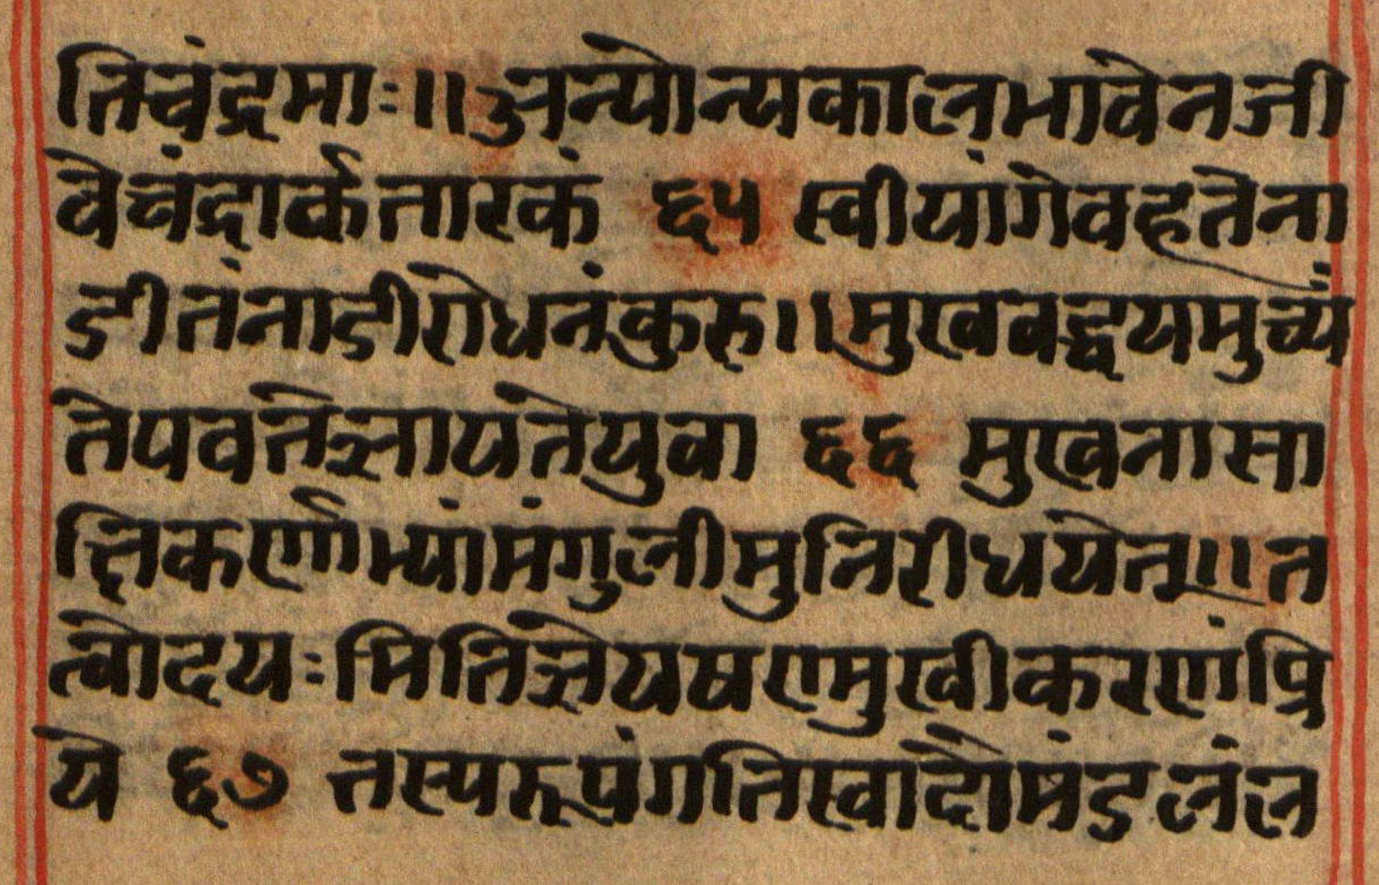 तिचंद्रमाः॥अन्योन्यकालभावेनजी
वेचंद्रार्कतारकं ६५ स्वीयांगेवहतेना
डीतंनाडीरोधनंकुरु॥मुखबद्धयमुच्यं
तेपवनेज्ञायतेयुवा ६६ मुखनासा
क्षिकर्णाभ्यांमंगुलीमुनिरोधयेत्॥त
त्वोदयःमितिज्ञेयषण्मुखीकरणंप्रि
ये ६७ तस्यरूपंगतिस्वादोमंडलंल